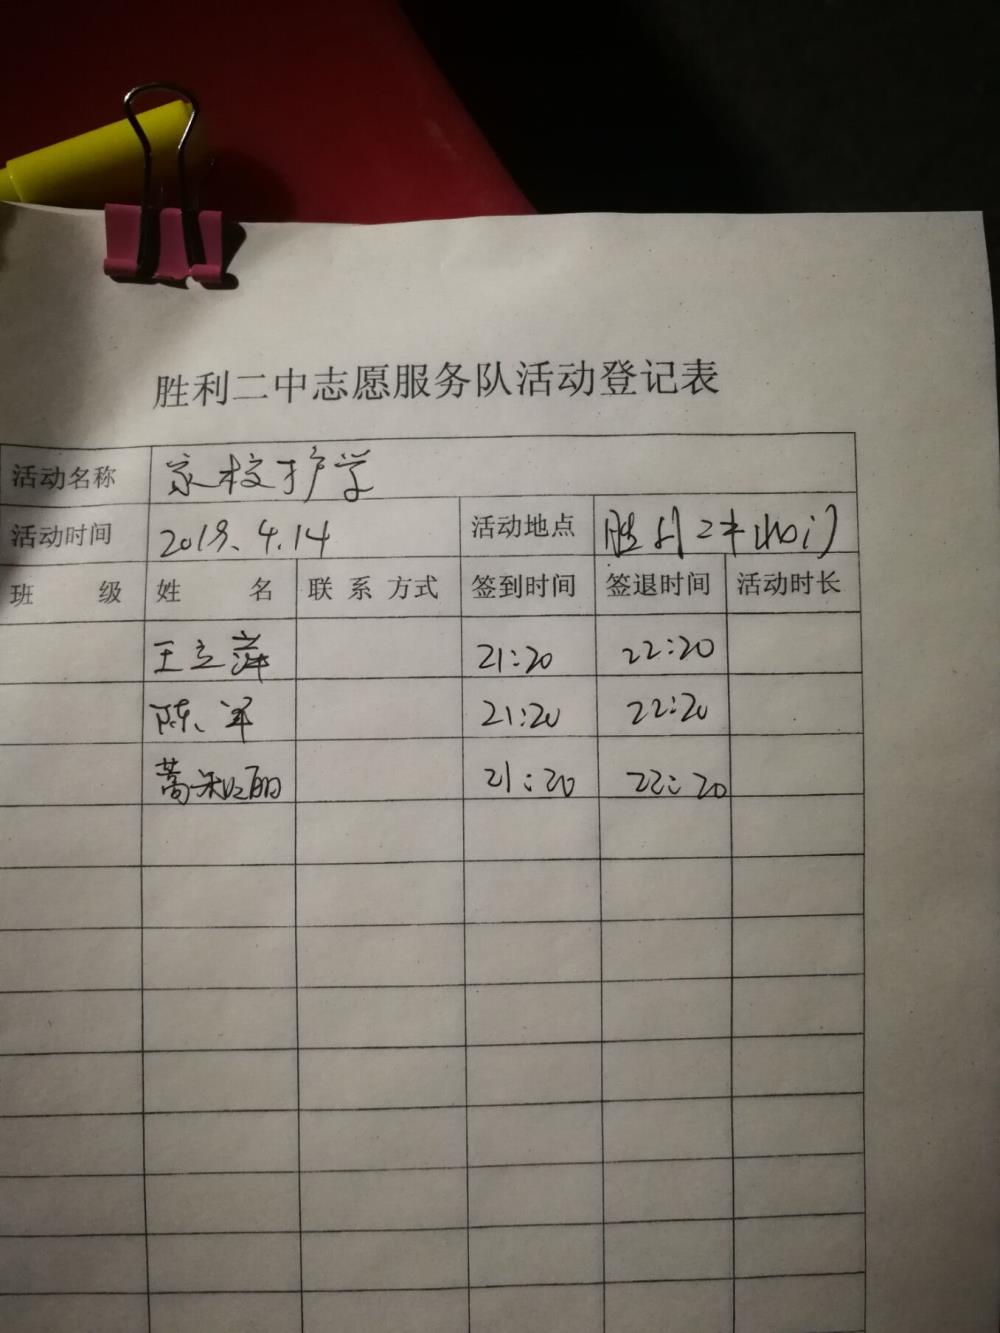 胜利二中志愿服务队活动登记表
活动名称 家校护学
活动时间 2018.4.14 活动地点 胜利二中北门
班 级 姓 名 联 系 方式 签到时间 签退时间 活动时长
王立萍 21:20 22:20
陈军 21:20 22:20
丽 21:20 22:20